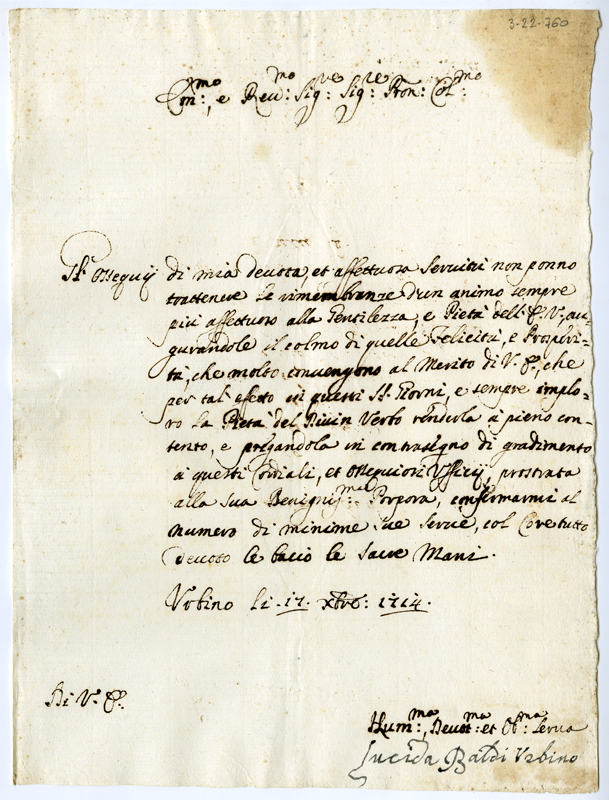 3-22-760
Em:mo, e Reu:mo Sig:re Sig:re Pron: Col:mo
Gl' Ossequij di mia deuota, et affettuosa Seruitù non ponno
trattenere le rimembranze d'un animo sempre
più affettuoso alla Gentilezza, e Pietà dell' E. V., au=
gurandole il colmo di quelle Felicità, e Prosperi=
tà, che molto conuengono al Merito di V. E., che
per tal' efetto in questi SS. Giorni, e sempre implo=
ro la Pietà del Diuin Verbo rendola à pieno con=
tento, e pregandola in contrasegno di gradimento
à questi Cordiali, et Ossequiosi Vfficij, prostrata
alla sua Benignis:ma Porpora, confermarmi al
numero di minime sue Serue, col Core tutto
deuoto le bacio le Sacre Mani.
Vrbino li 17. xbre: 1714.
Di V. E.
Hum:ma, Deuot:ma et Ob:ma Serua
Lucida Baldi Vrbino